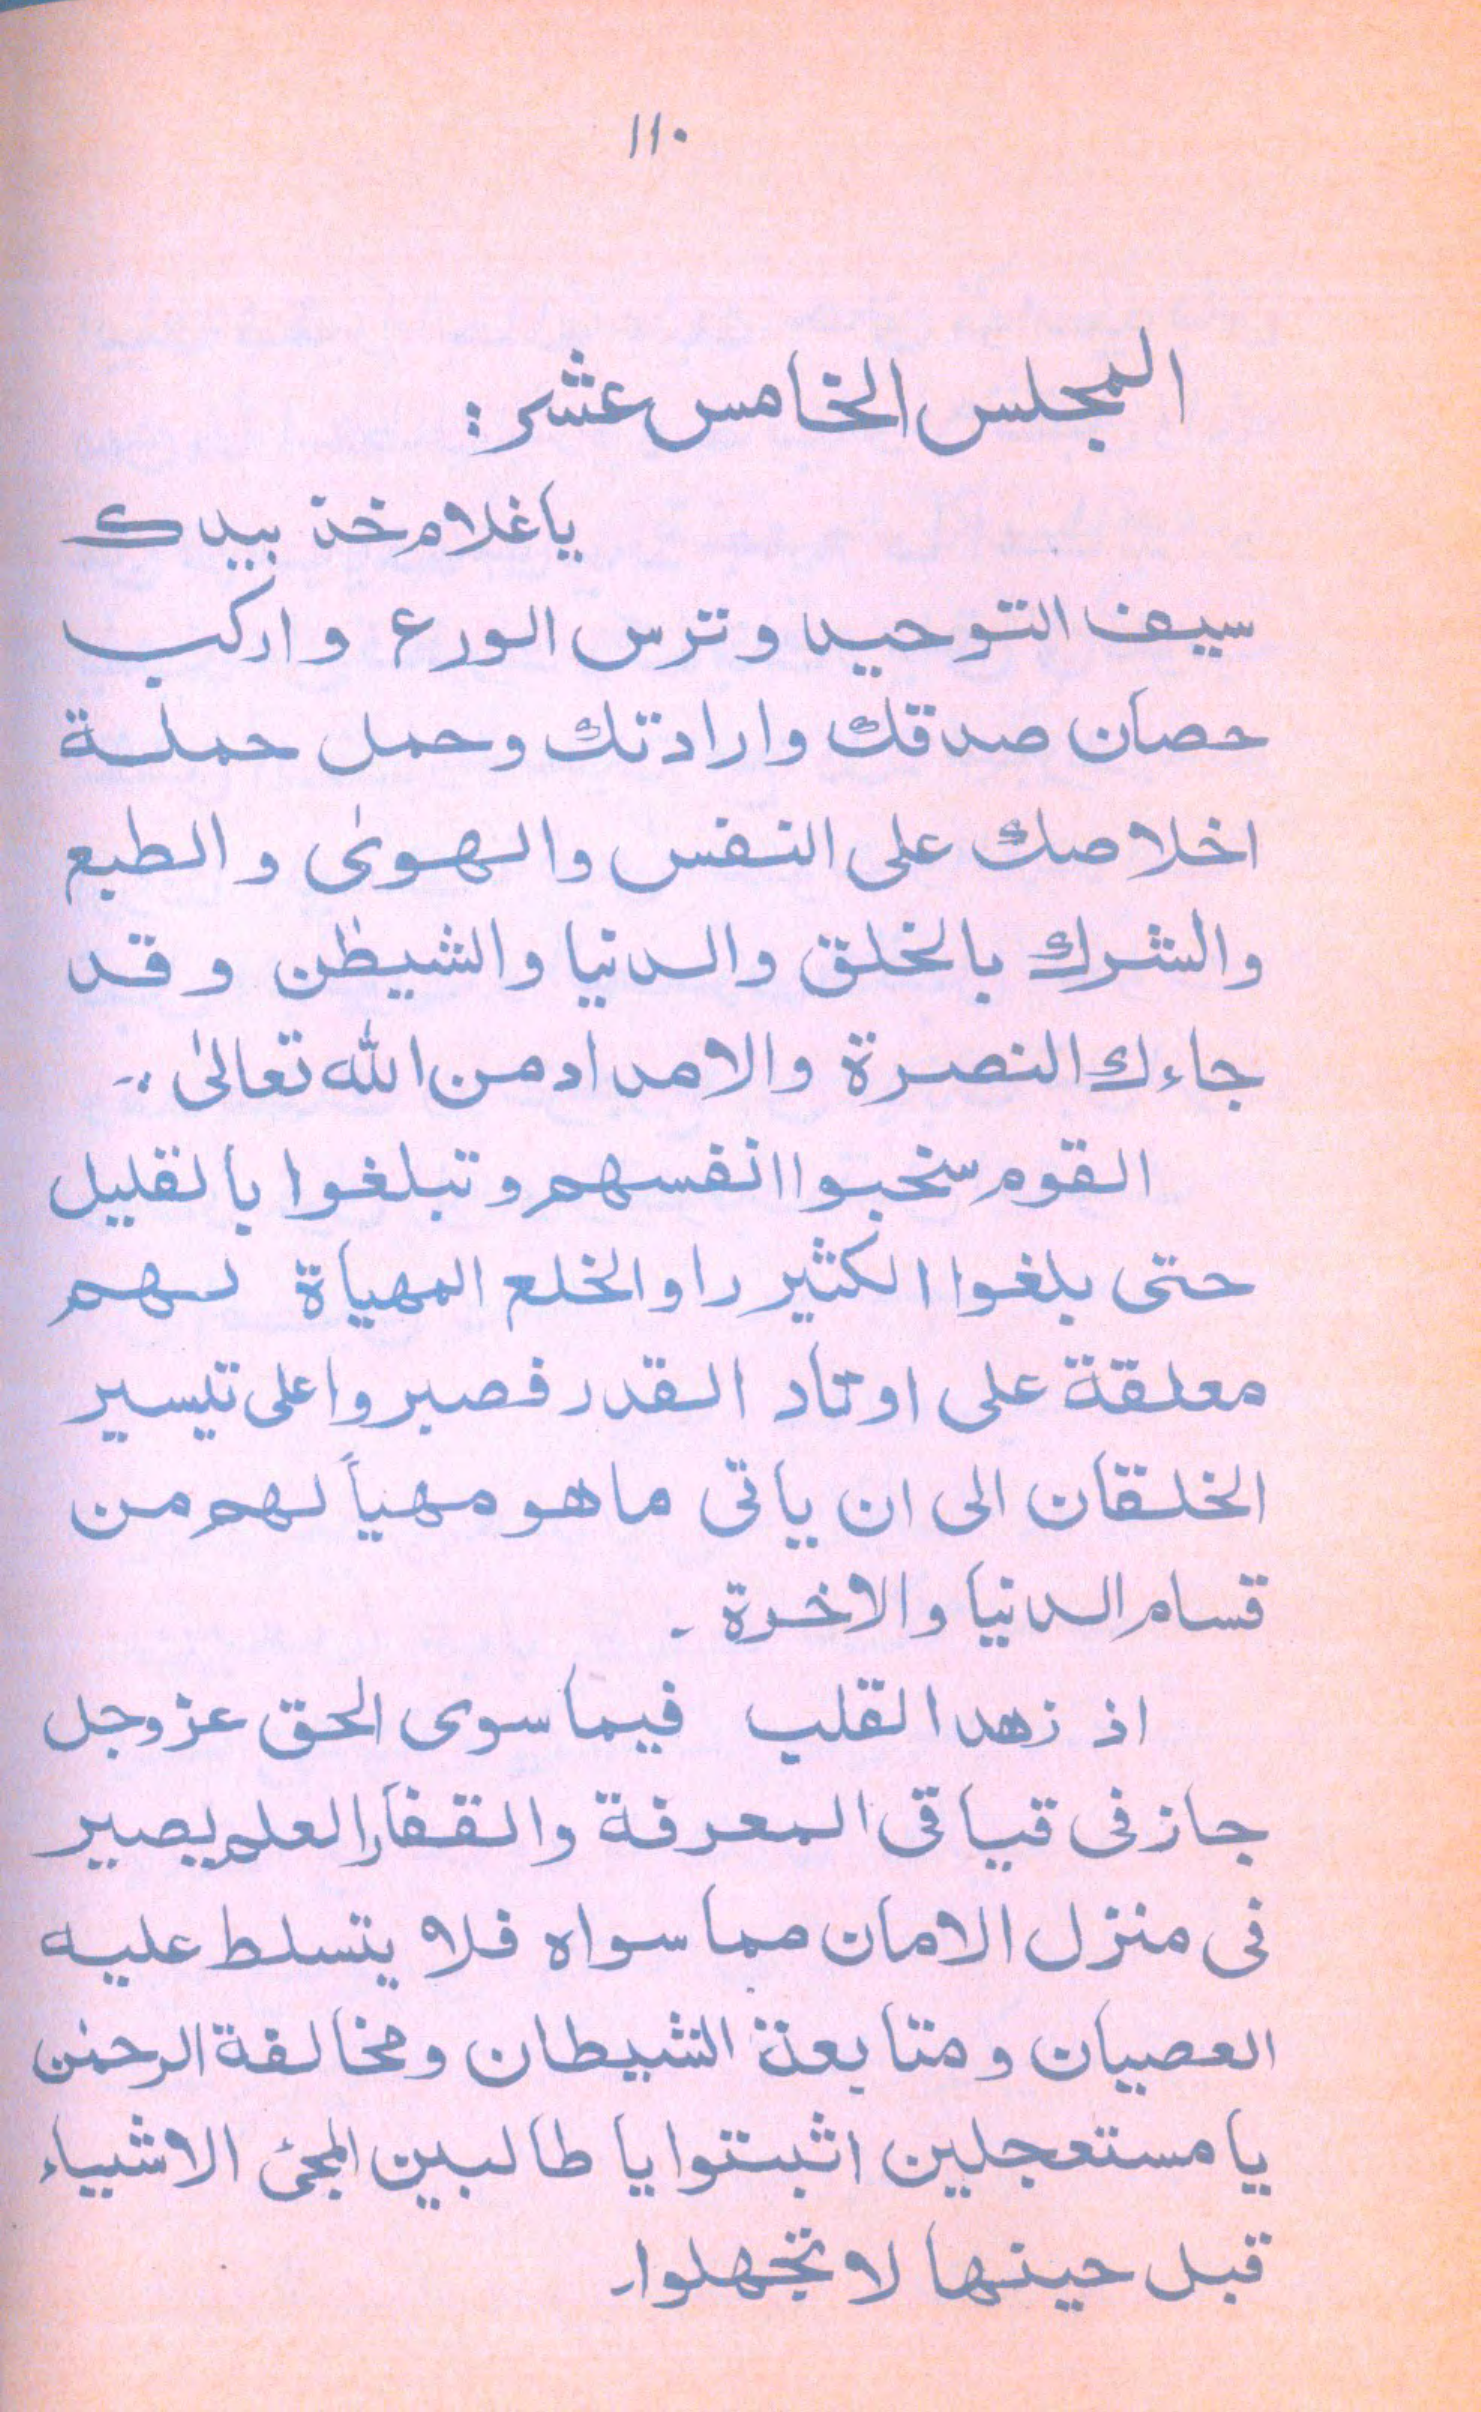 ١١٠
المجلس الخامس عشر:
يا غلام خذ بيدك
سيف التوحيد وترس الورع واركب
حصان صدقك وارادتك وحمل حملة
اخلاصك على النفس والهوىٰ والطبع
والشرك بالخلق والدنيا والشيطٰن وقد
جاءك النصرة والامداد من الله تعالىٰ۔
القوم سخبوا انفسهم وتبلغوا بالقليل
حتى بلغوا الكثير راو الخلع المهياة لهم
معلقة على اوتاد القدر فصبروا على تيسير
الخلقان الى ان ياتى ما هو مهيأً لهم من
قسام الدنيا والاخرة۔
اذ زهد القلب فيما سوى الحق عز وجل
جاز فى قيافى المعرفة والقفار العلم يصير
فى منزل الامان مما سواه فلا يتسلط عليه
العصيان ومتابعة الشيطان ومخالفة الرحمٰن
يا مستعجلين اثبتوا يا طالبين المجئ الاشياء
قبل حينها لا تجهلوا۔